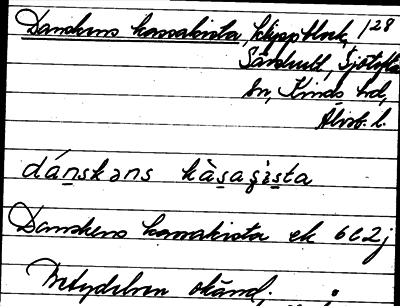 Danskens kassakista, klippblock, 128
Särshult, Sjötofta
sn, Kinds hd,
Älvsb. l.
dánskəns kàsaʂista
Danskens kassakista ek 6C2j
Betydelsen okänd.